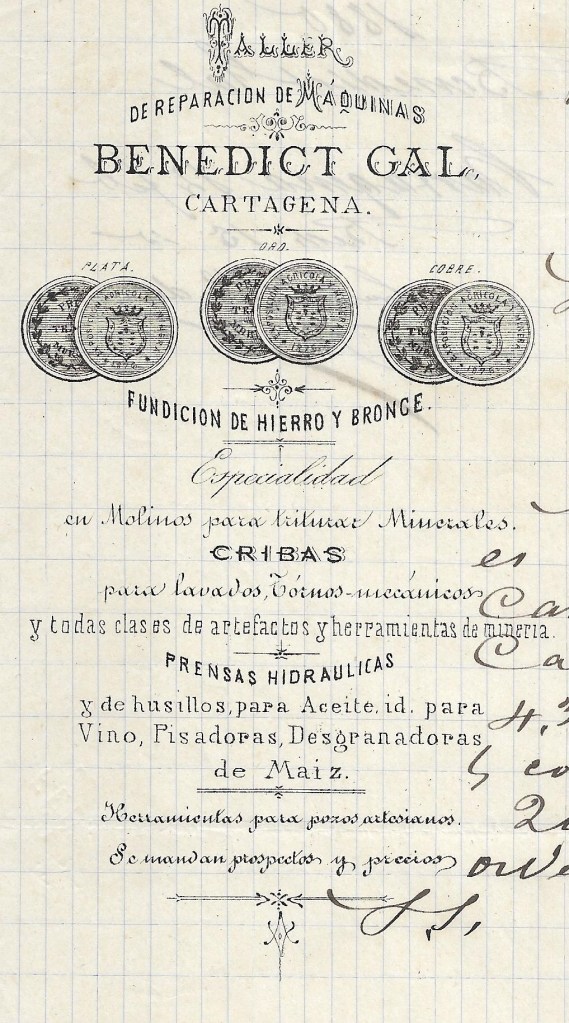 TALLER
DE REPARACION DE MÁQUINAS
BENEDICT GAL,
CARTAGENA.
ORO.
PLATA.
COBRE.
FUNDICION DE HIERRO Y BRONCE.
Especialidad
en Molinos para triturar Minerales.
CRIBAS
para lavados, Tórnos-mecánicos
y todas clases de artefactos y herramientas de mineria.
PRENSAS HIDRAULICAS
y de husillos, para Aceite, id. para
Vino, Pisadoras, Desgranadoras
de Maiz.
Herramientas para pozos artesianos.
Se mandan prospectos y precios